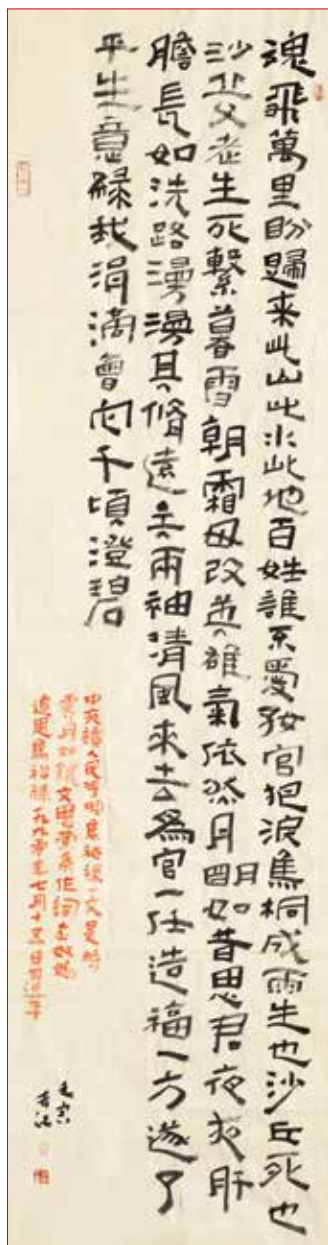 魂飛萬里盼歸来此山此水此地百姓誰不愛好官把淚焦桐成雨生也沙丘死也
沙丘父老生死繫暮雪朝霜毋改英雄氣依然月明如昔思君夜夜肝
膽長如洗路漫漫其脩遠矣兩袖清風来去爲官一任造福一方遂了
平生意緑我涓滴會它千頃澄碧
中夜讀人民呼唤焦裕禄一文是時
霽月如銀文思縈系作詞
追思焦裕禄一九九零年七月十五日習近平
壬寅